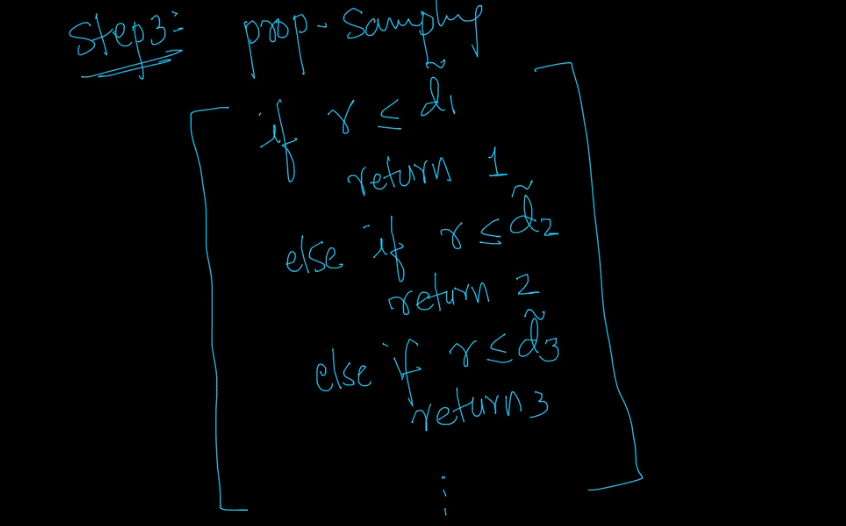 Step3:- prop-sampling
if r ≤ d̃1
return 1
else if r ≤ d̃2
return 2
else if r ≤ d̃3
return 3
⋮